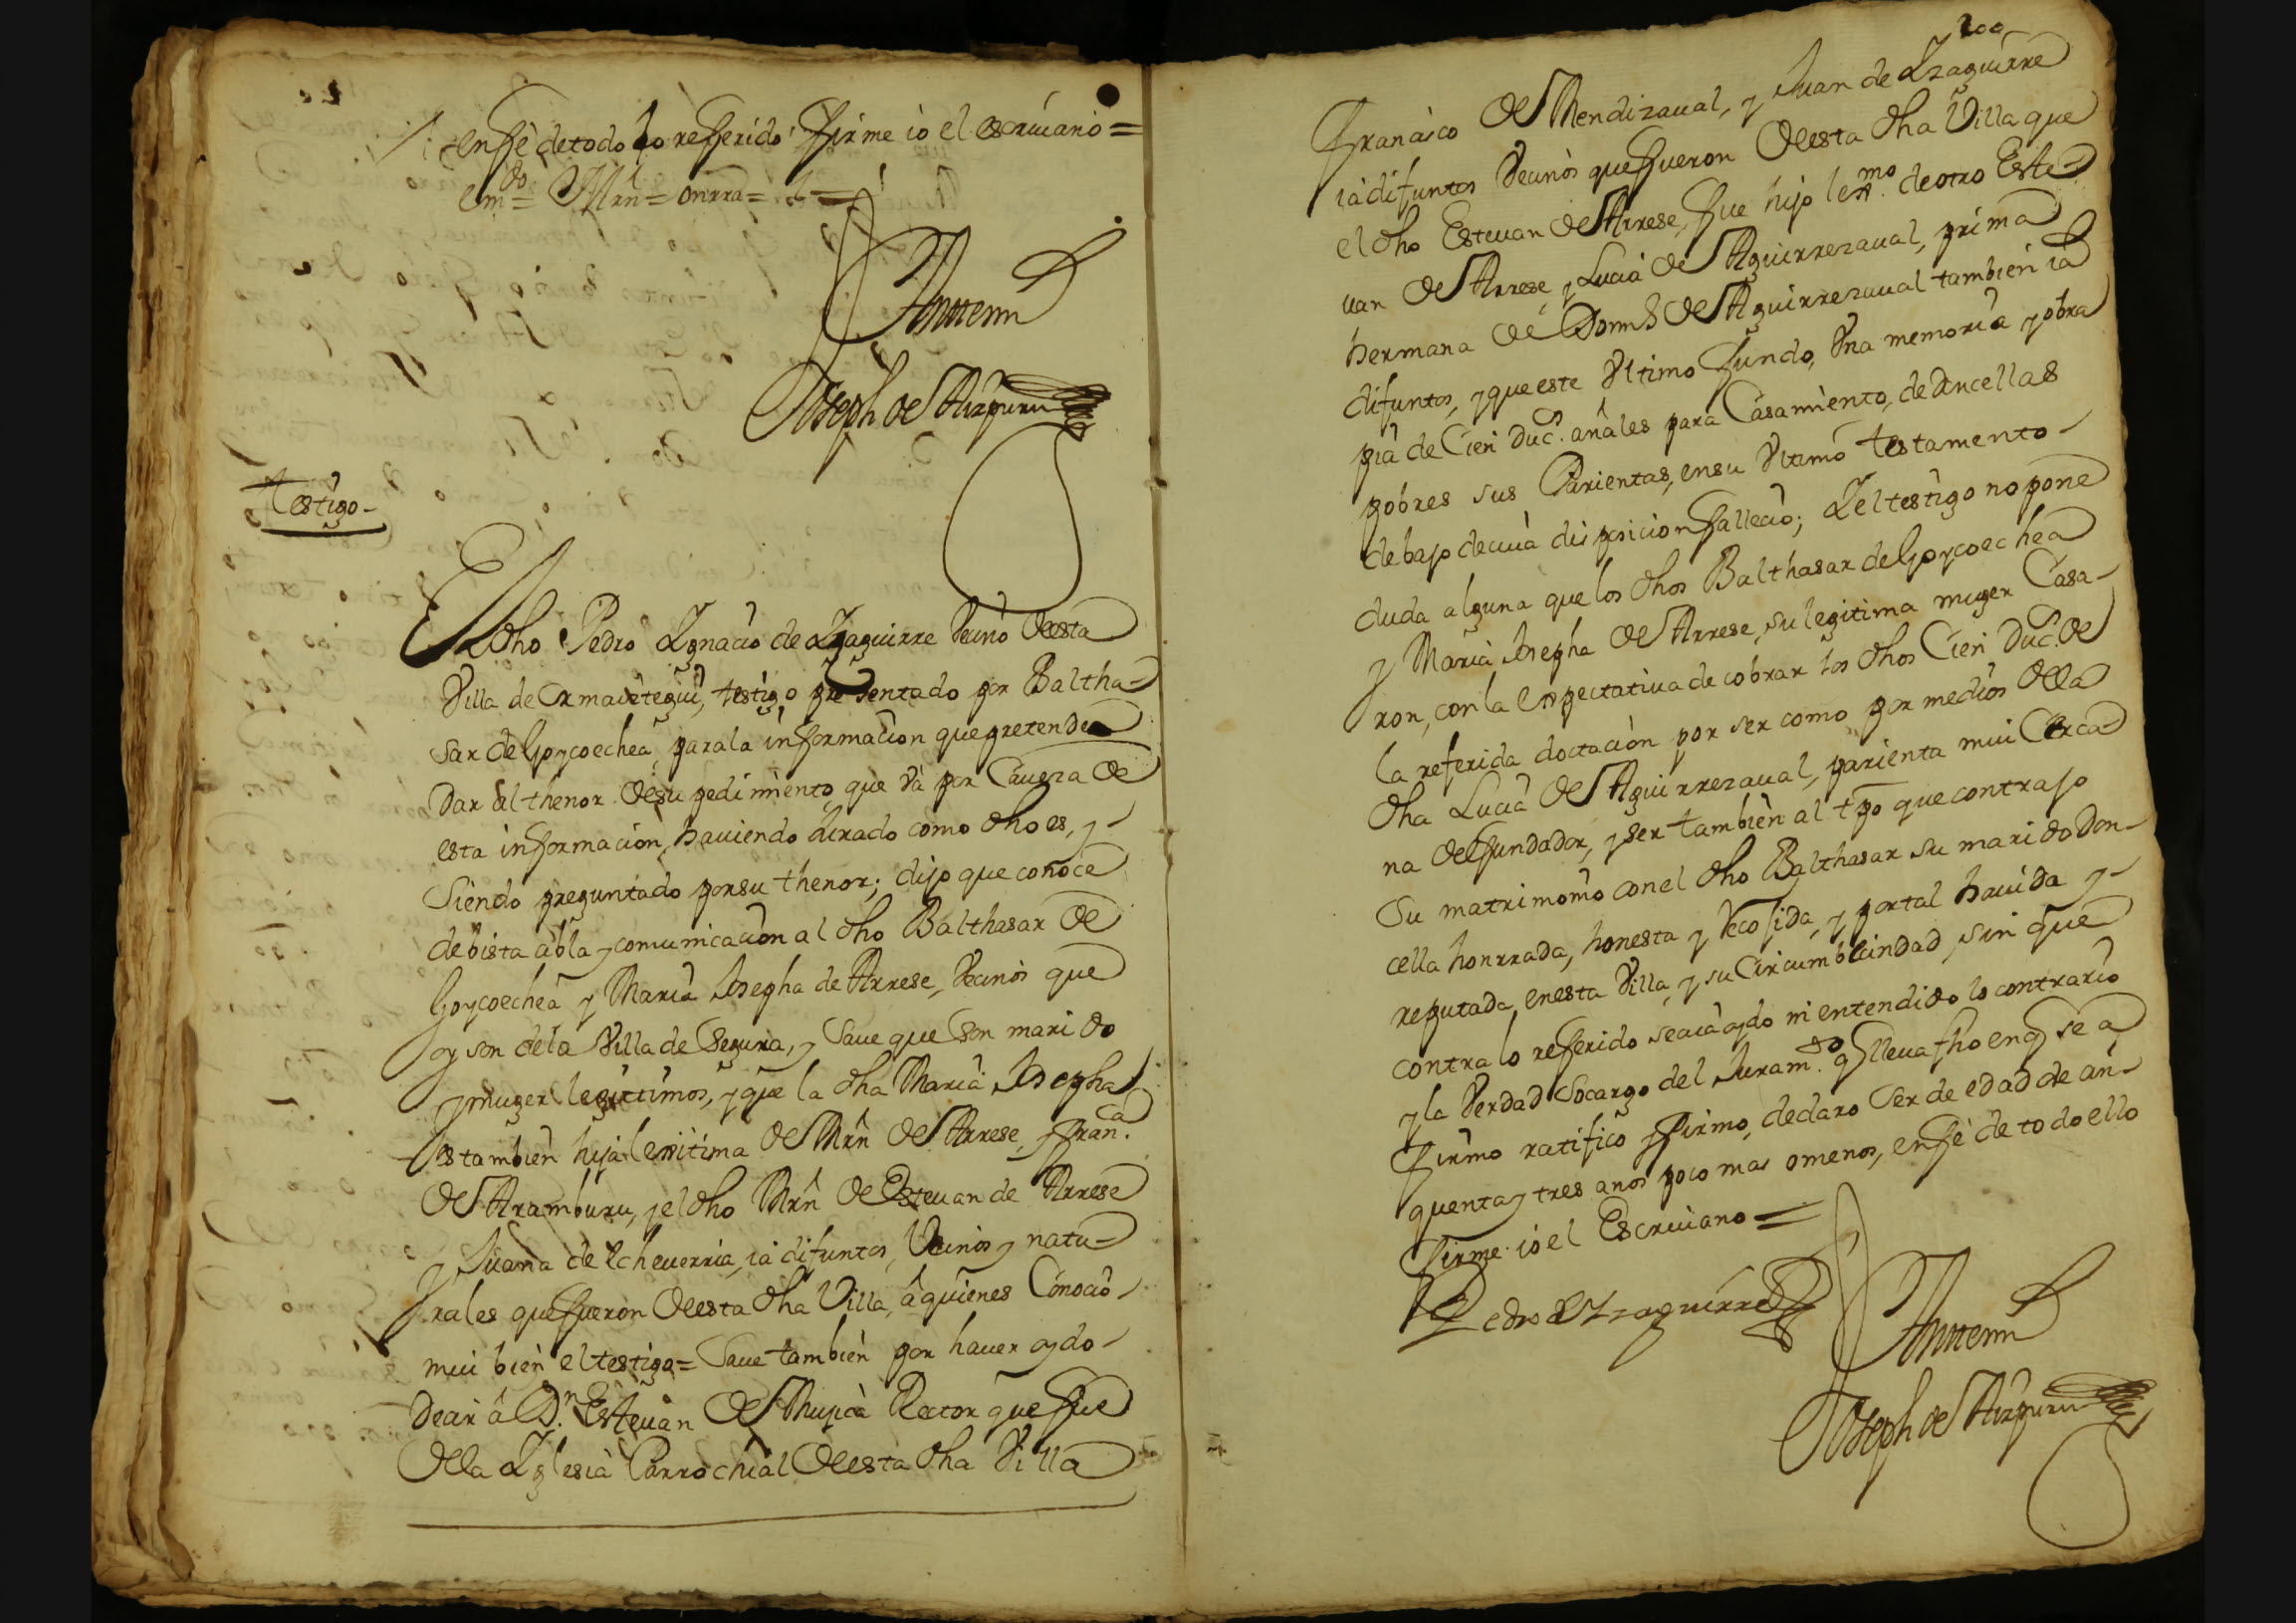 enffè detodo lo refferido ffirme io el escriuano =
Em.do = Mrñ = onrra =
Anttemi
Joseph de Aizpuru
Testigo -
El dho Pedro Ygnacio de Yzaguirre Vecino desta
Villa de Ormaiztegui, testigo presentado por Baltha-
sar de Goycoechea, para la informacion que pretende
Dar al thenor desu pedimiento que và por Caueza de
esta informacion, hauiendo Jurado como dho es, y -
Siendo preguntado porsu thenor; dijo que conoce
debista abla y comunicacion al dho Balthasar de
Goycoechea y Maria Josepha de Arrese, Vecinos que
oy son dela Villa de Segura, y Saue que son marido
y muger legittimos, y que la dha Maria Josepha
es tambien hija lexitima de Mrñ de Arrese, y ffran.ca
de Aramburu, y el dho Mrñ de Esteuan de Arrese
y Juana de Echeuerria, ia difuntos, Vecinos y natu-
rales que ffueron desta dha Villa, â quienes Conociò -
mui bien el testigo = Saue tambien por hauer oydo -
Decir â D.n Esteuan de Mujica Rector que ffue
dela Yglesia Parrochial desta dha Villa
200
ffrancisco de Mendizaual, y Juan de Yzaguirre
ia difuntos Vecinos que ffueron desta dha Villa que
el dho Esteuan de Arrese, ffue hijo lex.mo de otro Este-
uan de Arrese, y Lucia de Aguirrezaual, prima
hermana de Domº de Aguirrezaual tambien ia
difuntos, y que este Vltimo ffundo, Vna memoria y obra
pia de Cien Duc.s añales para Casamiento, de doncellas
pobres sus Parientas, ensu Vltimo testamento -
debajo decuia disposicion ffallecio; Y el testigo no pone
duda alguna que los dhos Balthasar de Goycoechea
y Maria Josepha de Arrese, su legitima muger Casa-
ron, con la espectatiua de cobrar los dhos Cien Duc.s de
la referida doctacion por ser como por medios dela
dha Lucia de Aguirrezaual, parienta mui Cerca
na del ffundador, y ser tambien al tpo que contrajo
Su matrimonio con el dho Balthasar su marido Don-
cella honrrada, honesta y recojida, y portal hauida y -
reputada, enesta Villa, y su Circumbecindad, sin que
contra lo refferido seaia oydo ni entendido lo contrario
y la Verdad Socargo del Juram.to q lleua fho en q se a
ffirmo ratifico y ffirmo, declaro Ser de edad de cin-
quenta y tres anos poco mas omenos, en ffè de todo ello
ffirme io el Escriuano =
Pedro de Yzaguirre
Anttemi
Joseph de Aizpuru